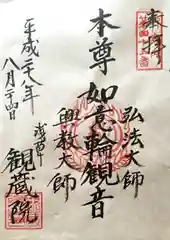 奉拝
本尊 如意輪観音
弘法大師
興教大師
平成二十八年
八月二十四日
浅草
観蔵院